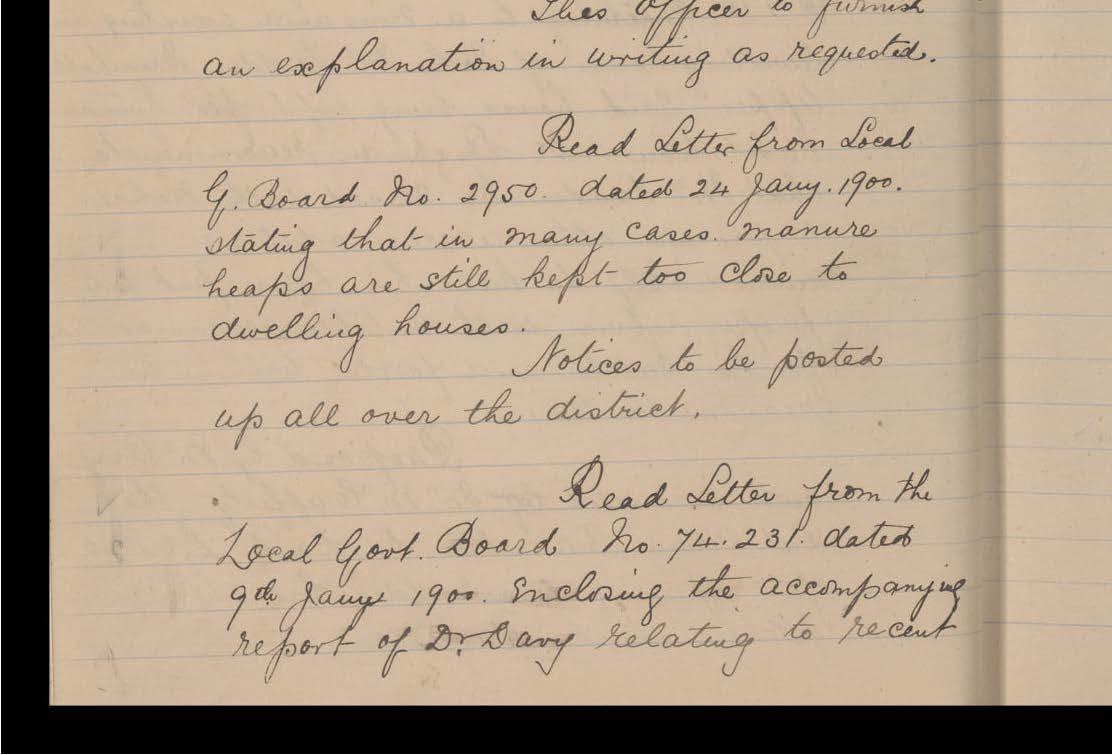 This Officer to furnish
an explanation in writing as requested.
Read Letter from Local
G. Board No. 2950. dated 24 Jany. 1900.
stating that in many cases. manure
heaps are still kept too close to
dwelling houses.
Notices to be posted
up all over the district.
Read Letter from the
Local Govt. Board No. 74.231. dated
9th Jany 1900. Enclosing the accompanying
report of Dr. Davy relating to recent